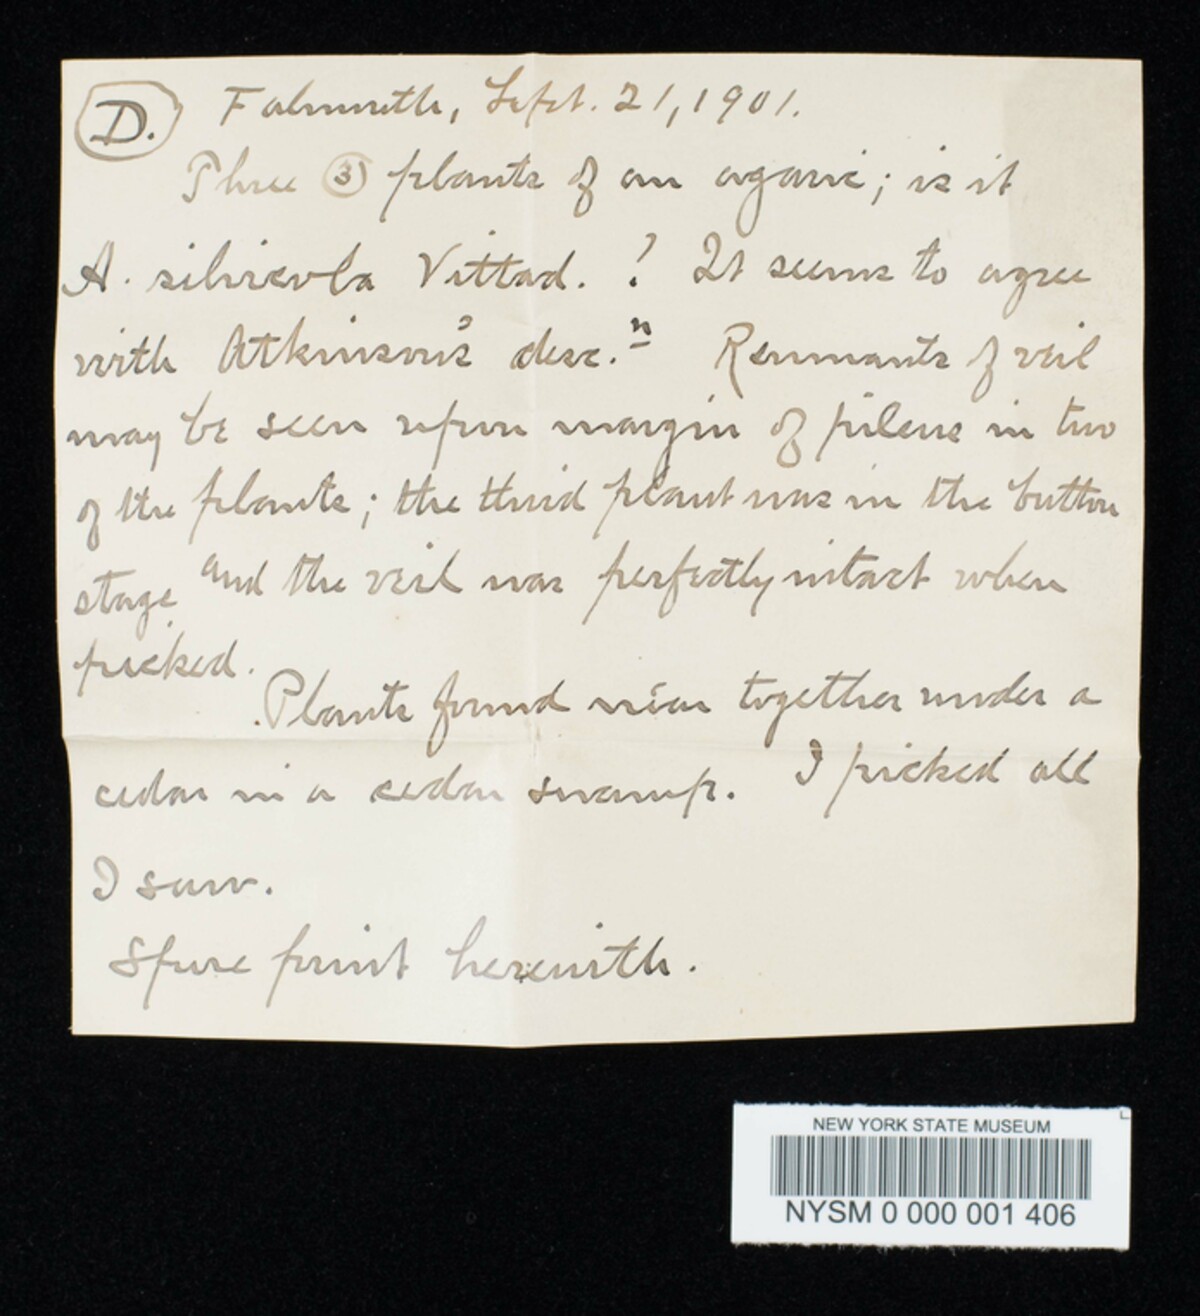 D. Falmouth, Sept. 21, 1901.
Three (3) plants of an agaric; is it
A. silvicola Vittad. ? It seems to agree
with Atkinson's desc.n Remnants of veil
may be seen upon margin of pileus in two
of the plants; the third plant was in the button
stage and the veil was perfectly intact when
picked.
Plants found near together under a
cedar in a cedar swamp. I picked all
I saw.
Spore print herewith.
NEW YORK STATE MUSEUM
NYSM 0 000 001 406